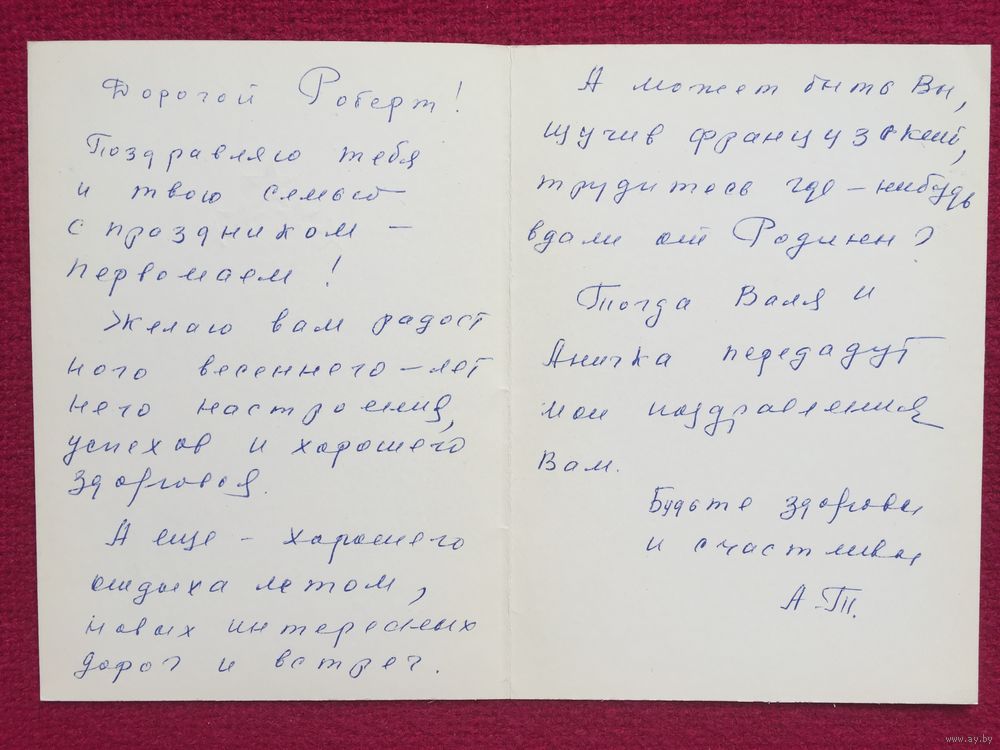 Дорогой Роберт!
Поздравляю тебя
и твою семью
с праздником –
Первомаем!
Желаю вам радост
ного весеннего – лет
него настроения,
успехов и хорошего
здоровья.
А еще – хорошего
отдыха летом,
новых интересных
дорог и встреч.
А может быть Вы,
изучив французский,
трудитесь где-нибудь
вдали от Родины?
Тогда Валя и
Аничка передадут
мои поздравления
Вам.
Будьте здоровы
и счастливы
А.Т.
www.ay.by